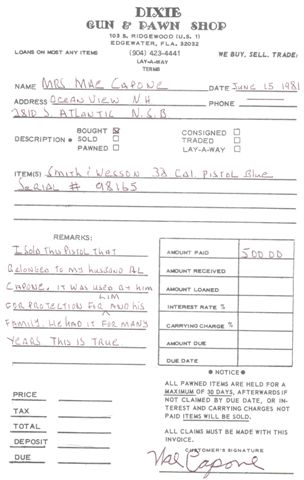 DIXIE
GUN & PAWN SHOP
103 S. RIDGEWOOD (U.S. 1)
EDGEWATER, FLA. 32032
LOANS ON MOST ANY ITEMS (904) 423-4441 WE BUY. SELL. TRADE:
LAY-A-WAY
TERMS
NAME MRS MAE CAPONE DATE JUNE 15 1981
ADDRESS OCEAN VIEW N H PHONE
2810 S. ATLANTIC N.S.B
BOUGHT ☒ CONSIGNED ☐
DESCRIPTION • SOLD ☐ TRADED ☐
PAWNED ☐ LAY-A-WAY ☐
ITEM(S) Smith & Wesson 32 Cal. Pistol Blue
Serial # 98165
REMARKS:
I Sold This Pistol That
Belonged to my husband AL
CAPONE, it was used at him
HIM
FOR PROTECTION FOR AND his
Family. He had it FOR MANY
YEARS This is TRUE
AMOUNT PAID 500 00
AMOUNT RECEIVED
AMOUNT LOANED
INTEREST RATE %
CARRYING CHARGE %
AMOUNT DUE
DUE DATE
PRICE
TAX
TOTAL
DEPOSIT
DUE
● NOTICE ●
ALL PAWNED ITEMS ARE HELD FOR A
MAXIMUM OF 30 DAYS, AFTERWARDS IF
NOT CLAIMED BY DUE DATE, OR IN-
TEREST AND CARRYING CHARGES NOT
PAID ITEMS WILL BE SOLD.
ALL CLAIMS MUST BE MADE WITH THIS
INVOICE.
CUSTOMER'S SIGNATURE
Mae Capone